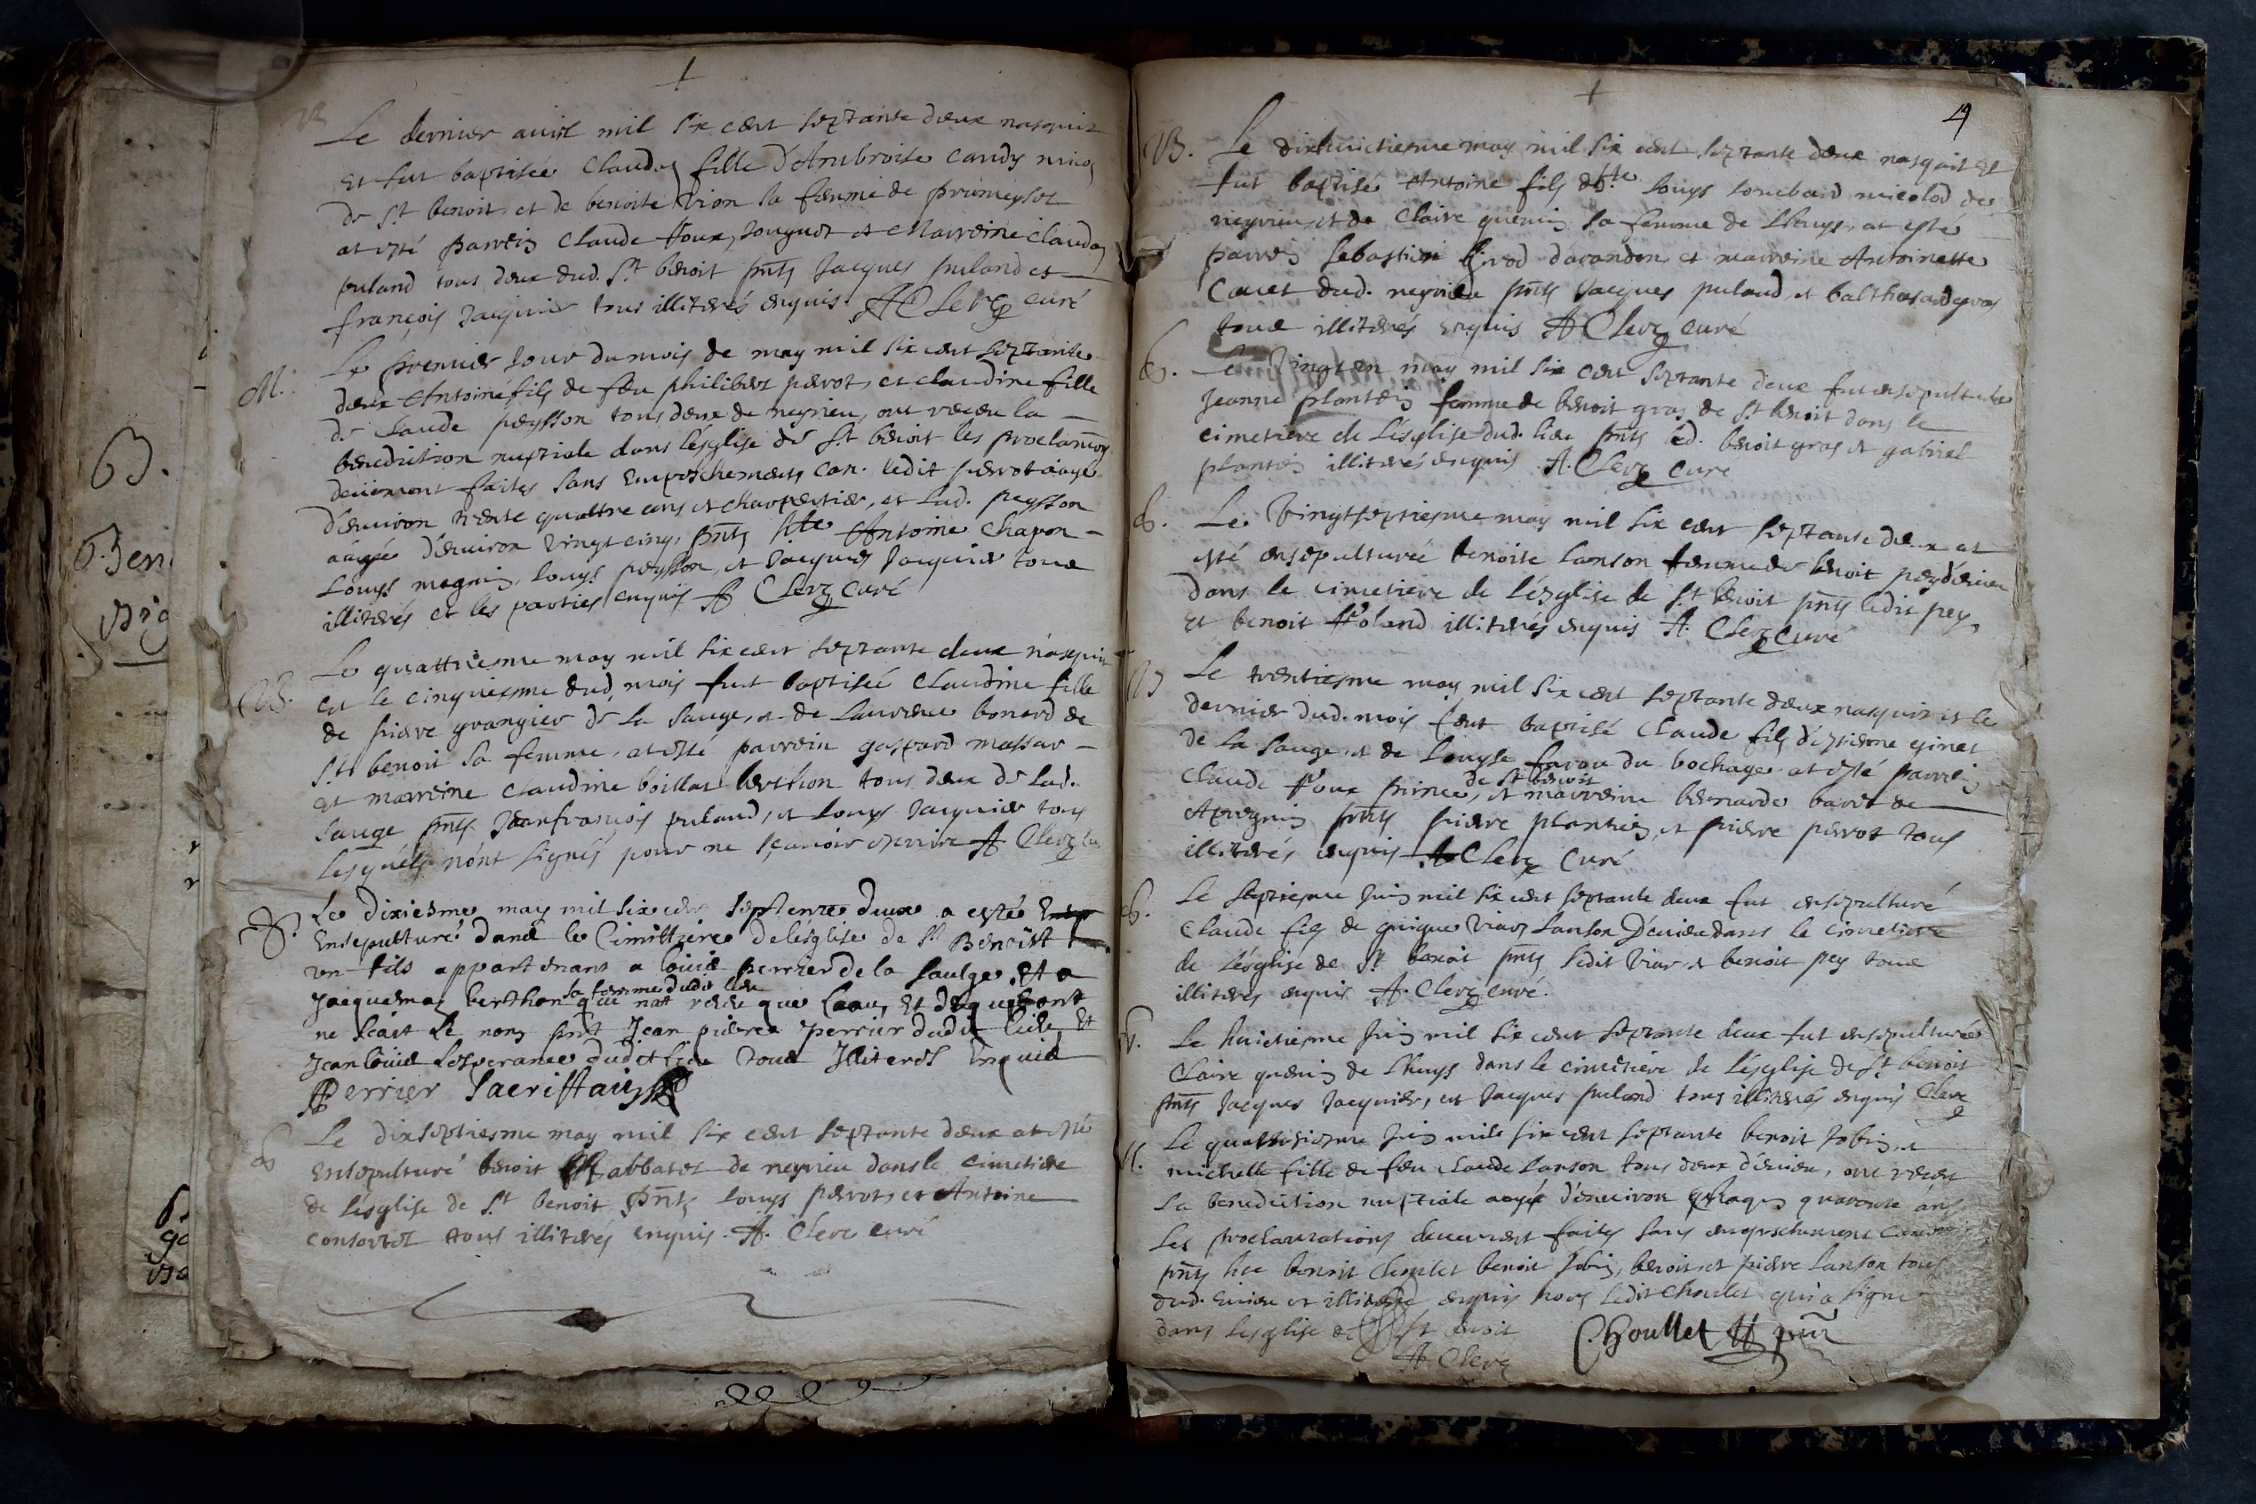 B.
Le dernier avril mil six cent septante deux nasquit
et fut baptisée Clauda fille d'Ambroise candy
de St. benoit et de benoite Vion sa femme de
at esté parrein Claude Roux, et Marreine Clauda
puland tous deux dud. St benoit pnts Jacques puland et
françois Jacquier tous illiterés enquis. A Clerc curé
M.
Le premier Jour du mois de may mil six cent septante
deux Antoine fils de feu philibert perrot, et claudine fille
de Claude peysson tous deux de neyrieu, ont receu la
benediction nuptiale dans lésglise de St benoit les proclamons
deuement faites sans empeschements can. ledit perrot aagé
d'environ trente quattre ans et charpentier, et lad. peysson
aagée d'environ vingt cinq, pnts hte Antoine Chapon
Louys magnin, Louys peysson, et Jacques Jacquier tous
illiterés et les parties enquis A Clerc curé
B.
Le quattriesme may mil six cent septante deux násquit
et le cinquiesme dud. mois fut baptisée Claudine fille
de pierre grangier de la sauge, et de Laurence bonard de
St benoit sa femme, at esté parrein gaspard
et marreine Claudine boillat berthon tous deux de lad.
sauge pnts Jeanfrançois puland, et Louys Jacquier tous
lesquels n'ont signés pour ne sçavoir escrire A Clerc cu
S.
Le dixiesme may mil six cens septente deux a esté
Ensepulturé dans le Cimittiere de lésglise de St Benoist
un fils appartenant a louis perrier de la saulge et a
Jaquema berthon sa femme dudit lieu qui nat receu que l'eau, Et duquel ont
ne scait Le nom pnt Jean pierre perrier dudit lieu Et
Jean louis Lesperance dudit lieu tous Illiterés Enquis
Perrier Sacristain
S
Le dixseptiesme may mil six cent septante deux at esté
ensepulturé benoit abbatet de neyrieu dans le cimetiere
de lésglise de St benoit pnts Louys perrot, et Antoine
consortet tous illiterés enquis. A. Clerc curé
4
B.
Le dixhuictiesme may mil six cent septante deux nasquit et
fut baptisé Antoine fils d'hte Louys Lombard de
neyrieu, et de Claire guenin sa femme de Lhuys, at esté
parrein Sebastien d'arandon et marreine Antoinette
Cauet dud. neyrieu pnts Jacques puland, et balthasard gros
tous illiterés enquis A Clerc curé
S.
Le Vingt un may mil six cent septante deux fut ensepulturée
Jeanne plantin femme de benoit gras de St benoit dans le
cimetiere de Lésglise dud. lieu pnts led. benoit gras et gabriel
plantin illiterés enquis A. Clerc curé
S.
Le Vingtseptiesme may mil six cent septante deux at
esté ensepulturée benoite Lanson femme de benoit pey d'evieu
dans le cimetiere de lésglise de St benoit pnts ledit pey,
et benoit Roland illiterés enquis A. Clerc curé
B
Le trentiesme may mil six cent septante deux nasquit et le
dernier dud. mois feut baptisé Claude fils d'estienne ginet
de la sauge, et de Louyse favau du bochage at esté parrein
Claude Roux prince, de St benoit et marreine bernarde baret de
Apregnin pnts pierre plantin et pierre perrot tous
illiterés enquis A Clerc Curé
S.
Le septiesme Juin mil six cent septante deux fut ensepulturé
Claude fils de guigue Viar Lanson D'evieu dans le cimetiere
de lésglise de St benoit pnts ledit Viar, et benoit pey tous
illiterés enquis A. Clerc curé.
S.
Le huictiesme Juin mil six cent septante deux fut ensepulturée
Claire guenin de Lhuys dans le cimetiere de lésglise de St benoit
pnts Jacques Jacquier, et Jacques puland tous illiterés enquis Clerc
M.
Le quattorziesme Juin mil six cent septante benoit Jobin, et
michelle fille de feu Claude Lanson tous deux d'evieu, ont receu
la benediction nuptiale aagés d'environ chaqun quarente ans
les proclamations deuement faites sans empeschement
pnts hte benoit Choulet benoit Jobin, benoit et pierre Lanson tous
dud. Evieu et illiterés enquis hors ledit Choulet qui a signé
dans Lesglise de St benoit
Choullet pnt
A. Clerc